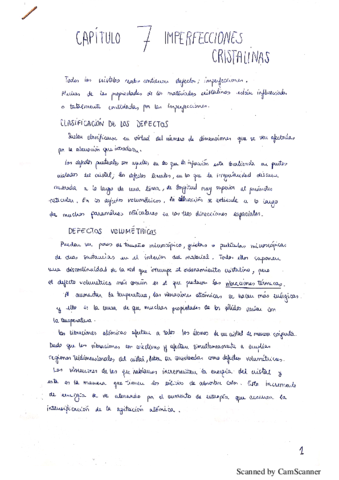 CAPÍTULO 7 IMPERFECCIONES
CRISTALINAS
Todos los cristales reales contienen defectos; imperfecciones.
Muchas de las propiedades de los materiales cristalinos están influenciadas
o totalmente controladas por las imperfecciones.
CLASIFICACIÓN DE LOS DEFECTOS
Suelen clasificarse en virtud del número de dimensiones que se ven afectadas
por la alteración que introducen.
Los defectos puntuales son aquellos en los que la alteración está localizada en puntos
aislados del cristal, los defectos lineales, en los que la irregularidad
a lo largo de una línea, de longitud muy superior al parámetro
reticular. En los defectos volumétricos, la alteración se extiende a lo largo
de muchos parámetros reticulares en las tres direcciones espaciales.
DEFECTOS VOLUMÉTRICOS
Pueden ser poros de tamaño microscópico, grietas o partículas microscópicas
de otras sustancias en el interior del material. Todos ellos suponen
una discontinuidad de la red que interrumpe el ordenamiento cristalino, pero
el defecto volumétrico más común es el que producen las vibraciones térmicas.
Al aumentar la temperatura, las vibraciones atómicas se hacen más enérgicas
y ello es la causa de que muchas propiedades de los sólidos varíen con
la temperatura.
Las vibraciones atómicas afectan a todos los átomos de un cristal de manera conjunta.
Dado que las vibraciones son aleatorias y afectan simultáneamente a amplias
regiones tridimensionales del cristal, deben ser consideradas como defectos volumétricos.
Las vibraciones de los átomos incrementan la energía del cristal y
esta es la manera que tienen los sólidos de absorber calor. Este incremento
de energía se ve alterado por el aumento de entropía que ocasiona la
intensificación de la agitación atómica.
1
Scanned by CamScanner